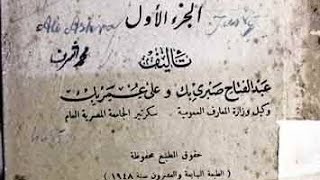 الجزء الأول
Ali Ashra
محمد أشرف
تأليف
عبد الفتاح صبري بك و على عمر بك
وكيل وزارة المعارف العمومية سكرتير الجامعة المصرية العام
حقوق الطبع محفوظة
(الطبعة السابعة والعشرون سنة ١٩٤٨)